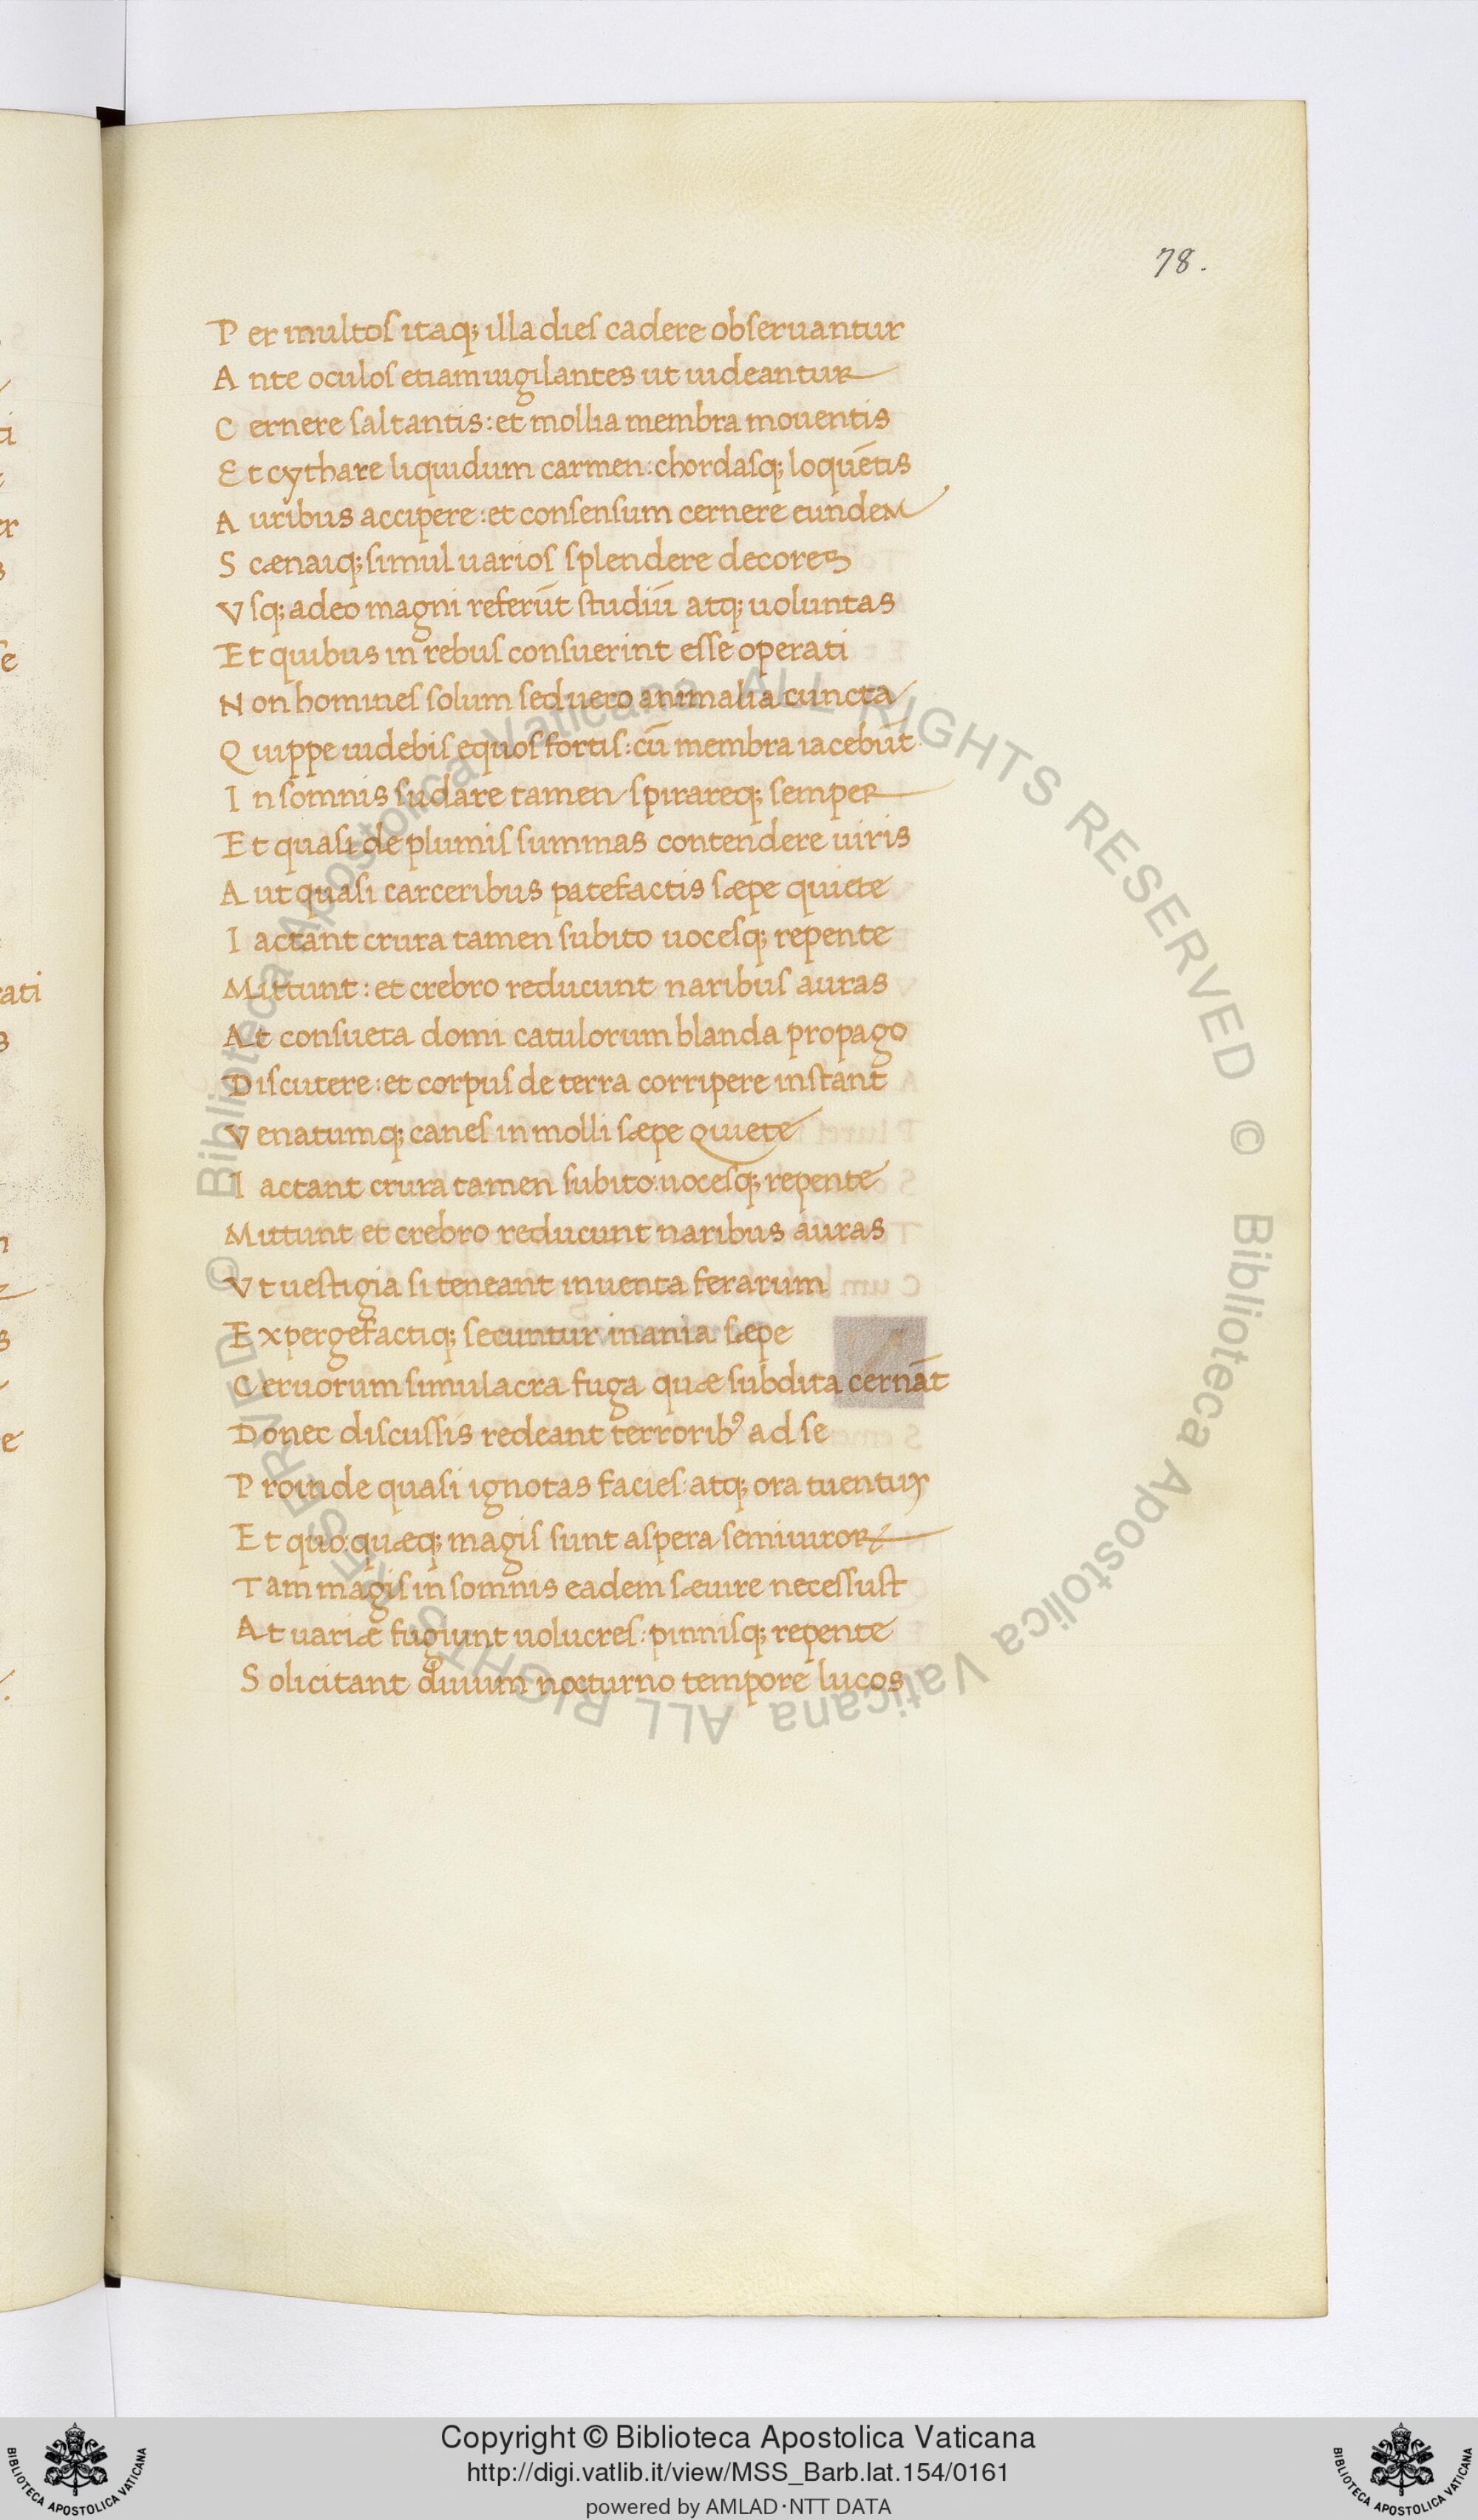 78.
Per multos itaq; illa dies cadere obseruantur
Ante oculos etiam uigilantes ut uideantur
Cernere saltantis: et mollia membra mouentis
Et cythare liquidum carmen: chordasq; loquētis
Auribus accipere: et consensum cernere eundem
Scænaiq; simul uarios splendere decores
Vsq; adeo magni referūt studiū atq; uoluntas
Et quibus in rebus consuerint esse operati
Non homines solum sed uero animalia cuncta
Quippe uidebis equos fortis: cū membra iacebūt
In somnis sudare tamen spirareq; semper
Et quasi de plumis summas contendere uiris
Aut quasi carceribus patefactis sæpe quiete
Iactant crura tamen subito uocesq; repente
Mittunt: et crebro reducunt naribus auras
At consueta domi catulorum blanda propago
Discutere: et corpus de terra corripere instant
Venatumq; canes in molli sæpe quiete
Iactant crura tamen subito: uocesq; repente
Mittunt et crebro reducunt naribus auras
Vt uestigia si teneant inuenta ferarum
Expergefactiq; secuntur inania sæpe
Ceruorum simulacra fuga quæ subdita cernāt
Donec discussis redeant terrorib⁹ ad se
Proinde quasi ignotas facies: atq; ora tuentur
Et quo: quæq; magis sunt aspera semiuiroꝝ
Tam magis in somnis eadem sæuire necessust
At uariæ fugiunt uolucres: pinnisq; repente
Solicitant diuum nocturno tempore lucos
© Biblioteca Apostolica Vaticana ALL RIGHTS RESERVED © Biblioteca Apostolica Vaticana ALL RIGHTS RESERVED
BIBLIOTECA APOSTOLICA VATICANA
Copyright © Biblioteca Apostolica Vaticana
http://digi.vatlib.it/view/MSS_Barb.lat.154/0161
powered by AMLAD·NTT DATA
BIBLIOTECA APOSTOLICA VATICANA